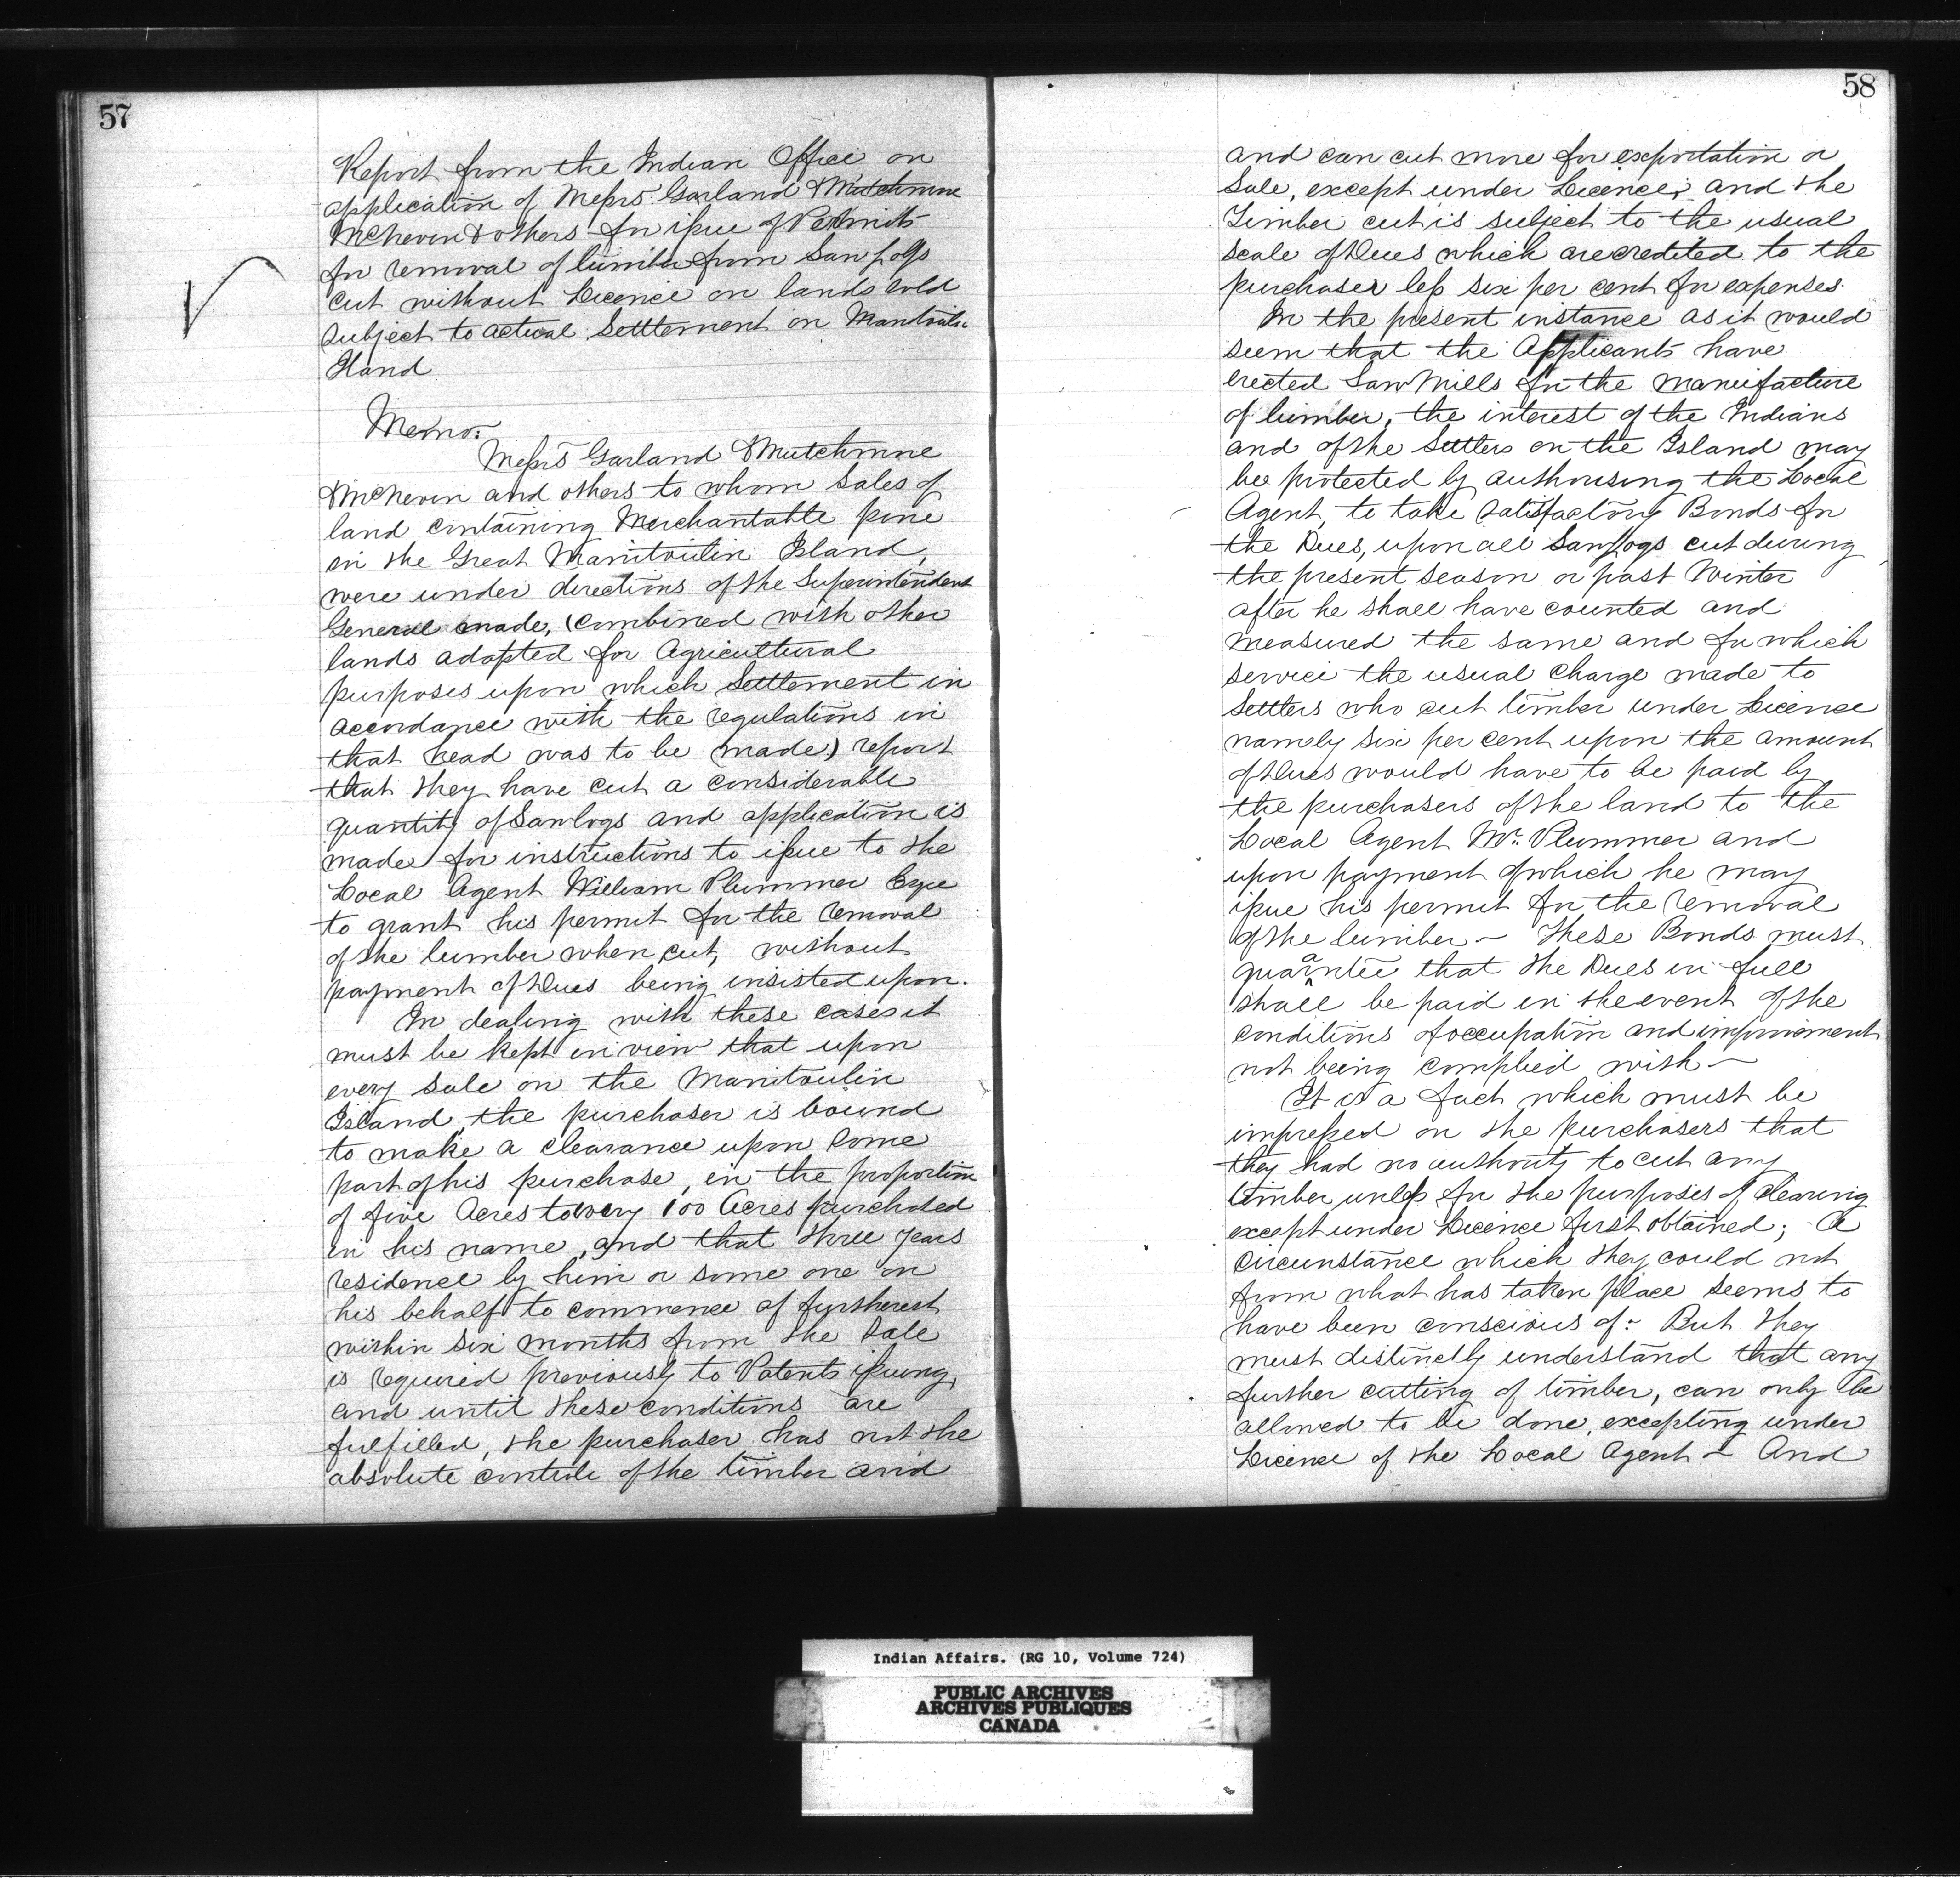 57
Report from the Indian Office on
application of Messrs. Garland & Mutchmore
McNevin & others for issue of Permits
for removal of lumber from Saw Logs
cut without Licence on lands sold
subject to actual Settlement on Manitoulin
Island
Memo:
Messrs Garland & Mutchmore
& McNevin and others to whom Sales of
land containing Merchantable pine
on the Great Manitoulin Island,
were under directions of the Superintendent
General made, (combined with other
lands adapted for Agricultural
purposes upon which Settlement in
accordance with the regulations in
that head was to be made) report
that they have cut a considerable
quantity of Sawlogs and application is
made for instructions to issue to the
Local Agent William Plummer Esqre
to grant his permit for the removal
of the lumber when cut, without
payment of Dues being insisted upon.
In dealing with these cases it
must be kept in view that upon
every sale on the Manitoulin
Island, the purchaser is bound
to make a clearance upon some
part of his purchase, in the proportion
of five Acres to every 100 Acres purchased
in his name, and that three years
residence by him or some one on
his behalf to commence at furtherest
within six months from the Sale
is required previously to Patents issuing,
and until these conditions are
fulfilled, the purchaser has not the
absolute controle of the timber and
58
and can cut more for exportation or
Sale, except under Licence; and the
Timber cut is subject to the usual
scale of Dues which are credited to the
purchaser less six per cent for expenses.
In the present instance as it would
seem that the Applicants have
erected Saw Mills for the manufacture
of lumber, the interest of the Indians
and of the Settlers on the Island may
be protected by authorising the Local
Agent, to take satisfactory Bonds for
the Dues, upon all Sawlogs cut during
the present season or past Winter
after he shall have counted and
measured the same and for which
service the usual charge made to
Settlers who cut timber under Licence
namely six per cent upon the amount
of Dues would have to be paid by
the purchasers of the land to the
Local Agent Mr. Plummer and
upon payment of which he may
issue his permit for the removal
of the lumber – These Bonds must
guarantee that the Dues in full
shall be paid in the event of the
conditions of occupation and improvement
not being complied with –
It is a fact which must be
impressed on the purchasers that
they had no authority to cut any
timber unless for the purposes of clearing
except under Licence first obtained; a
circumstance which they could not
from what has taken place seems to
have been conscious of: But they
must distinctly understand that any
further cutting of timber, can only be
allowed to be done, excepting under
Licence of the Local Agent – And
Indian Affairs. (RG 10, Volume 724)
PUBLIC ARCHIVES
ARCHIVES PUBLIQUES
CANADA